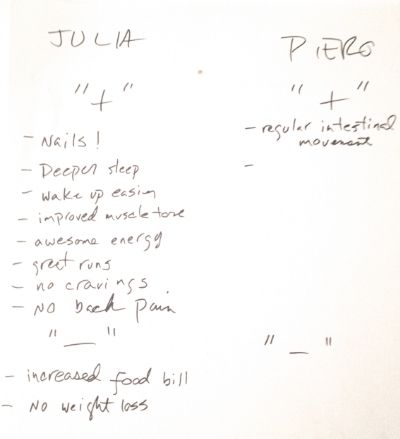 JULIA
"+"
- Nails!
- Deeper sleep
- wake up easier
- improved muscle tone
- awesome energy
- great runs
- no cravings
- No back pain
"—"
- increased food bill
- No weight loss
PIERO
"+"
- regular intestinal
movement
-
"—"